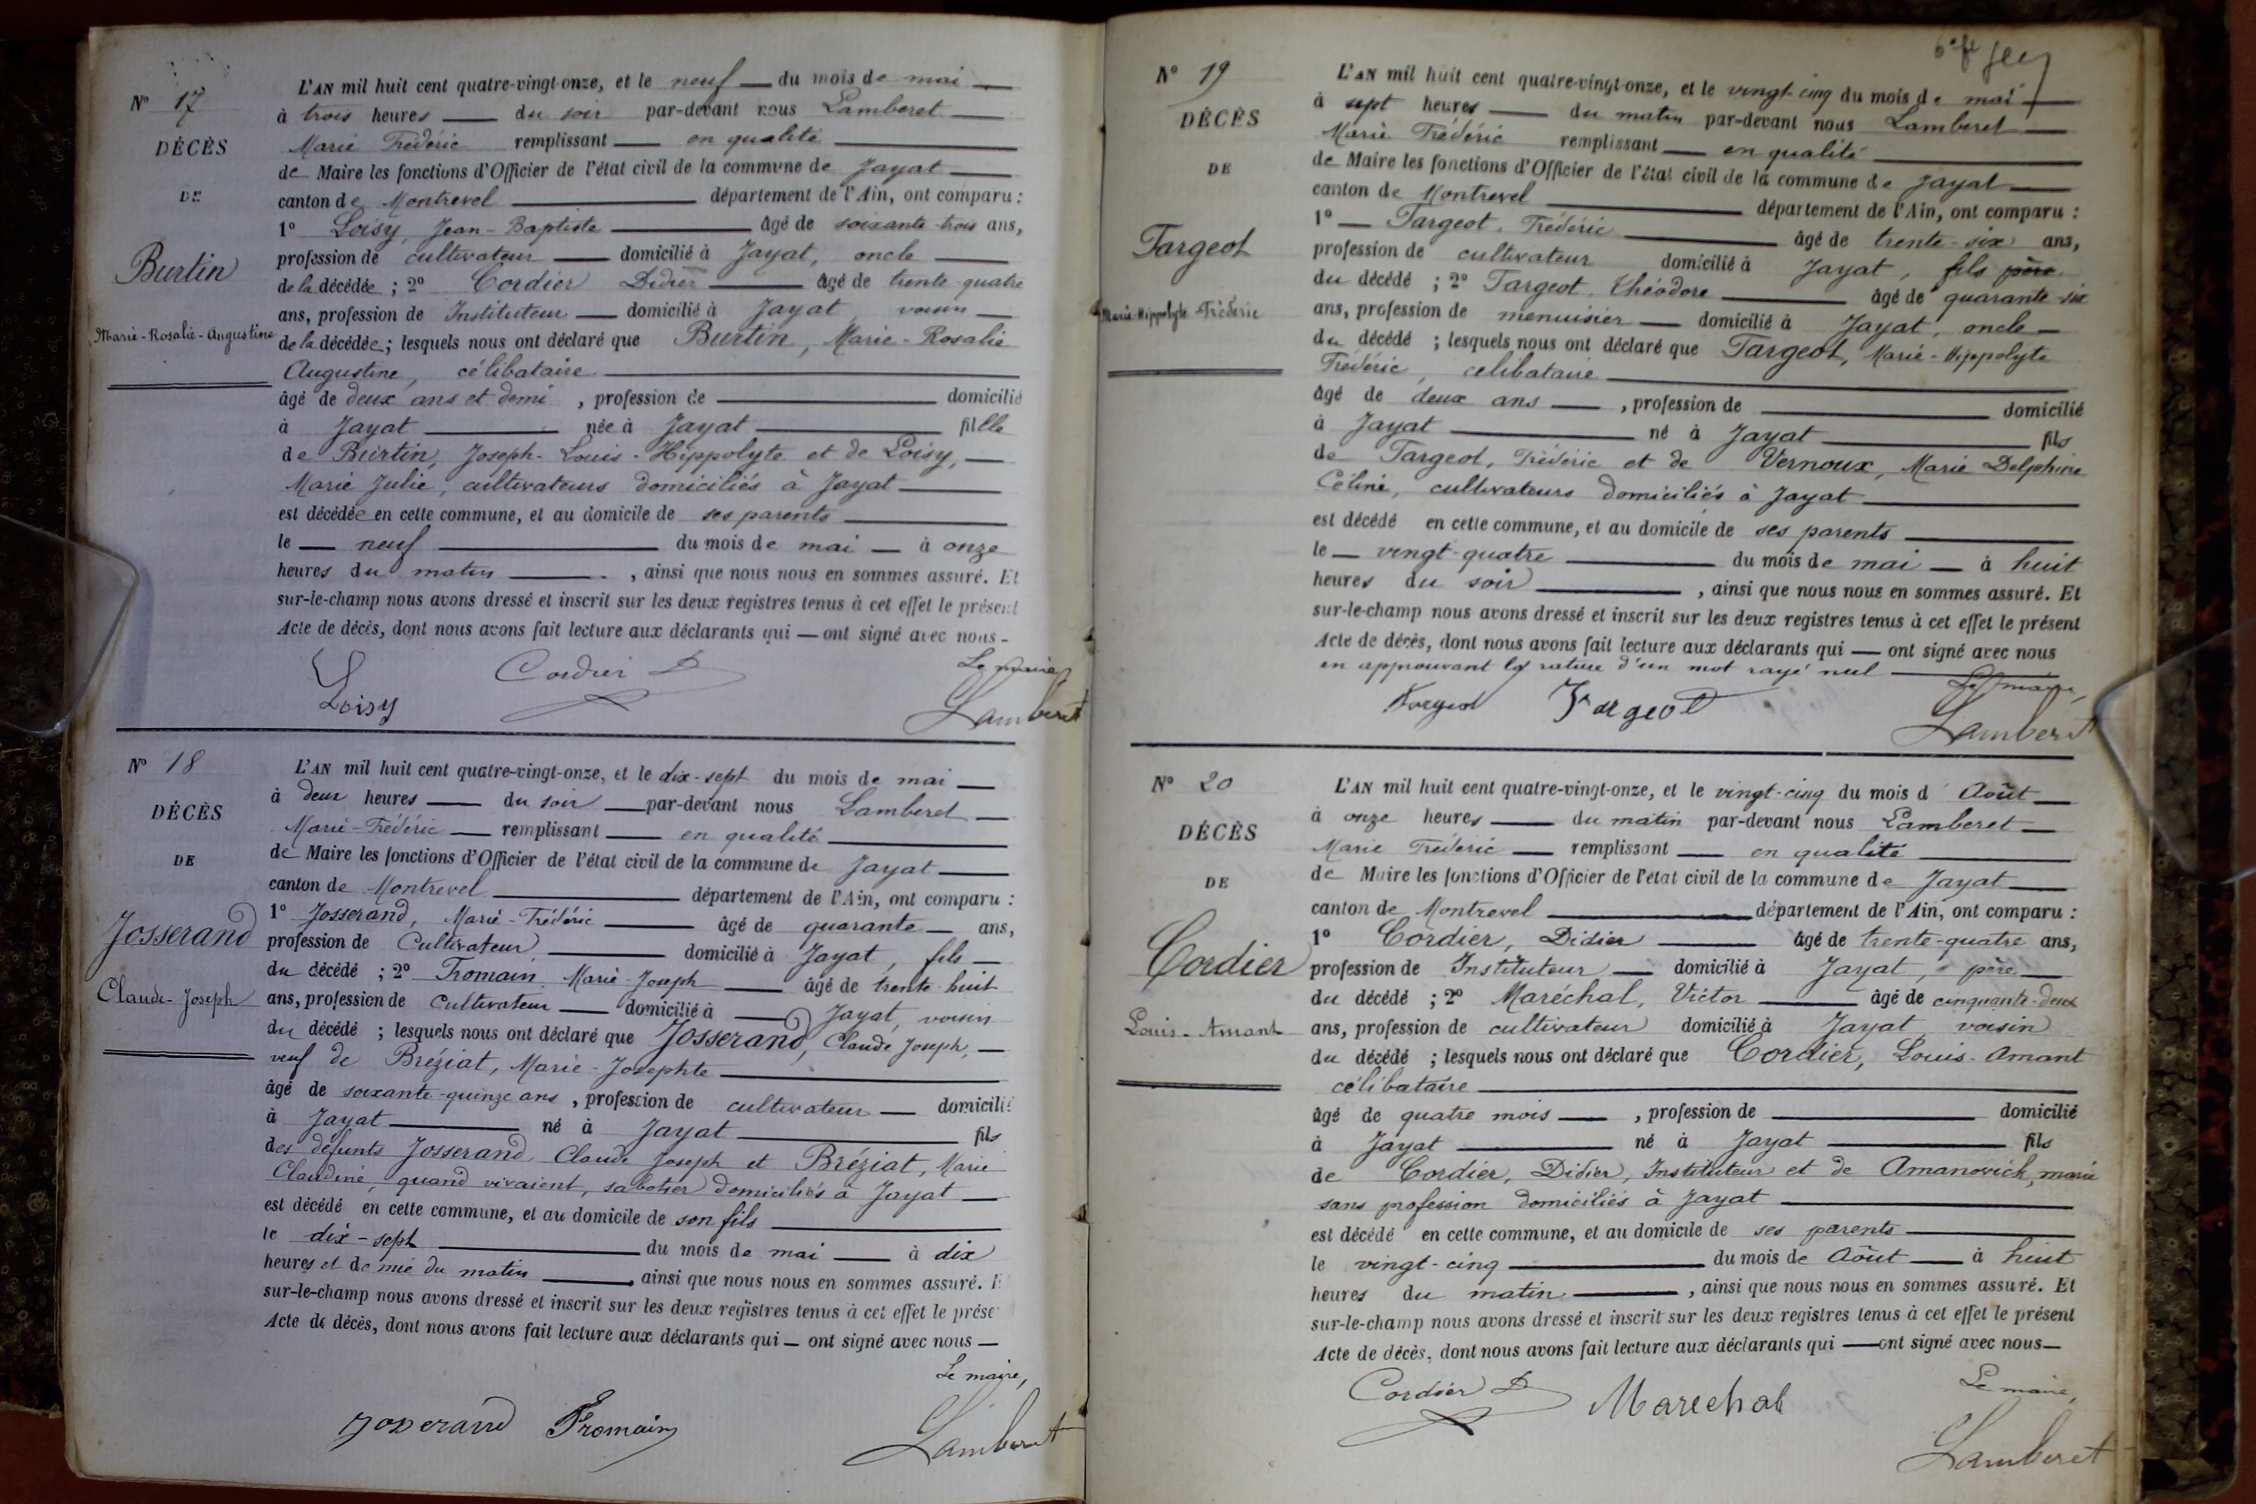 N° 17
DÉCÈS
DE
Burtin
Marie-Rosalie-Augustine
L'AN mil huit cent quatre-vingt-onze, et le neuf du mois de mai
à trois heures du soir par-devant nous Lamberet
Marie Frédéric remplissant en qualité
de Maire les fonctions d'Officier de l'état civil de la commune de Jayat
canton de Montrevel département de l'Ain, ont comparu :
1° Loisy, Jean-Baptiste âgé de soixante-trois ans,
profession de cultivateur domicilié à Jayat, oncle
de la décédée ; 2° Cordier Didier âgé de trente-quatre
ans, profession de Instituteur domicilié à Jayat voisin
de la décédée ; lesquels nous ont déclaré que Burtin, Marie-Rosalie
Augustine, célibataire
âgé de deux ans et demi , profession de domicilié
à Jayat née à Jayat fille
de Burtin, Joseph-Louis-Hippolyte et de Loisy,
Marie Julie, cultivateurs domiciliés à Jayat
est décédée en cette commune, et au domicile de ses parents
le neuf du mois de mai à onze
heures du matin , ainsi que nous nous en sommes assuré. Et
sur-le-champ nous avons dressé et inscrit sur les deux registres tenus à cet effet le présent
Acte de décès, dont nous avons fait lecture aux déclarants qui — ont signé avec nous -
Loisy Cordier D Le maire,
Lamberet
N° 18
DÉCÈS
DE
Josserand
Claude-Joseph
L'AN mil huit cent quatre-vingt-onze, et le dix-sept du mois de mai
à deux heures du soir par-devant nous Lamberet
Marie-Frédéric remplissant en qualité
de Maire les fonctions d'Officier de l'état civil de la commune de Jayat
canton de Montrevel département de l'Ain, ont comparu :
1° Josserand, Marie-Frédéric âgé de quarante ans,
profession de Cultivateur domicilié à Jayat, fils
du décédé ; 2° Fromain, Marie-Joseph âgé de trente-huit
ans, profession de cultivateur domicilié à Jayat, voisin
du décédé ; lesquels nous ont déclaré que Josserand, Claude Joseph,
veuf de Bréziat, Marie-Josephte
âgé de soixante-quinze ans , profession de cultivateur domicilié
à Jayat né à Jayat fils
des défunts Josserand Claude Joseph et Bréziat, Marie
Claudine, quand vivaient, sabotier domiciliés à Jayat
est décédé en cette commune, et au domicile de son fils
le dix-sept du mois de mai à dix
heures et demie du matin , ainsi que nous nous en sommes assuré. E
sur-le-champ nous avons dressé et inscrit sur les deux registres tenus à cet effet le prése
Acte de décès, dont nous avons fait lecture aux déclarants qui — ont signé avec nous —
Le maire,
Josserand Fromain Lamberet
N° 19
DÉCÈS
DE
Targeot
Marie-Hippolyte-Frédéric
L'AN mil huit cent quatre-vingt-onze, et le vingt-cinq du mois de mai
à sept heures du matin par-devant nous Lamberet
Marie Frédéric remplissant en qualité
de Maire les fonctions d'Officier de l'état civil de la commune de Jayat
canton de Montrevel département de l'Ain, ont comparu :
1° Targeot, Frédéric âgé de trente-six ans,
profession de cultivateur domicilié à Jayat, fils père
du décédé ; 2° Targeot, Théodore âgé de quarante-six
ans, profession de menuisier domicilié à Jayat, oncle
du décédé ; lesquels nous ont déclaré que Targeot, Marie-Hippolyte
Frédéric, célibataire
âgé de deux ans , profession de domicilié
à Jayat né à Jayat fils
de Targeot, Frédéric et de Vernoux, Marie Delphine
Céline, cultivateurs domiciliés à Jayat
est décédé en cette commune, et au domicile de ses parents
le vingt-quatre du mois de mai à huit
heures du soir , ainsi que nous nous en sommes assuré. Et
sur-le-champ nous avons dressé et inscrit sur les deux registres tenus à cet effet le présent
Acte de décès, dont nous avons fait lecture aux déclarants qui — ont signé avec nous
en approuvant la rature d'un mot rayé nul
Le maire,
Targeot Targeot Lamberet
N° 20
DÉCÈS
DE
Cordier
Louis-Amant
L'AN mil huit cent quatre-vingt-onze, et le vingt-cinq du mois d Août
à onze heures du matin par-devant nous Lamberet
Marie Frédéric remplissant en qualité
de Maire les fonctions d'Officier de l'état civil de la commune de Jayat
canton de Montrevel département de l'Ain, ont comparu :
1° Cordier, Didier âgé de trente-quatre ans,
profession de Instituteur domicilié à Jayat, père
du décédé ; 2° Maréchal, Victor âgé de cinquante-deux
ans, profession de cultivateur domicilié à Jayat voisin
du décédé ; lesquels nous ont déclaré que Cordier, Louis-Amant
célibataire
âgé de quatre mois , profession de domicilié
à Jayat né à Jayat fils
de Cordier, Didier, Instituteur et de Amanovich, marie
sans profession domiciliés à Jayat
est décédé en cette commune, et au domicile de ses parents
le vingt-cinq du mois de Août à huit
heures du matin , ainsi que nous nous en sommes assuré. Et
sur-le-champ nous avons dressé et inscrit sur les deux registres tenus à cet effet le présent
Acte de décès, dont nous avons fait lecture aux déclarants qui — ont signé avec nous —
Cordier D Marechal Le maire,
Lamberet